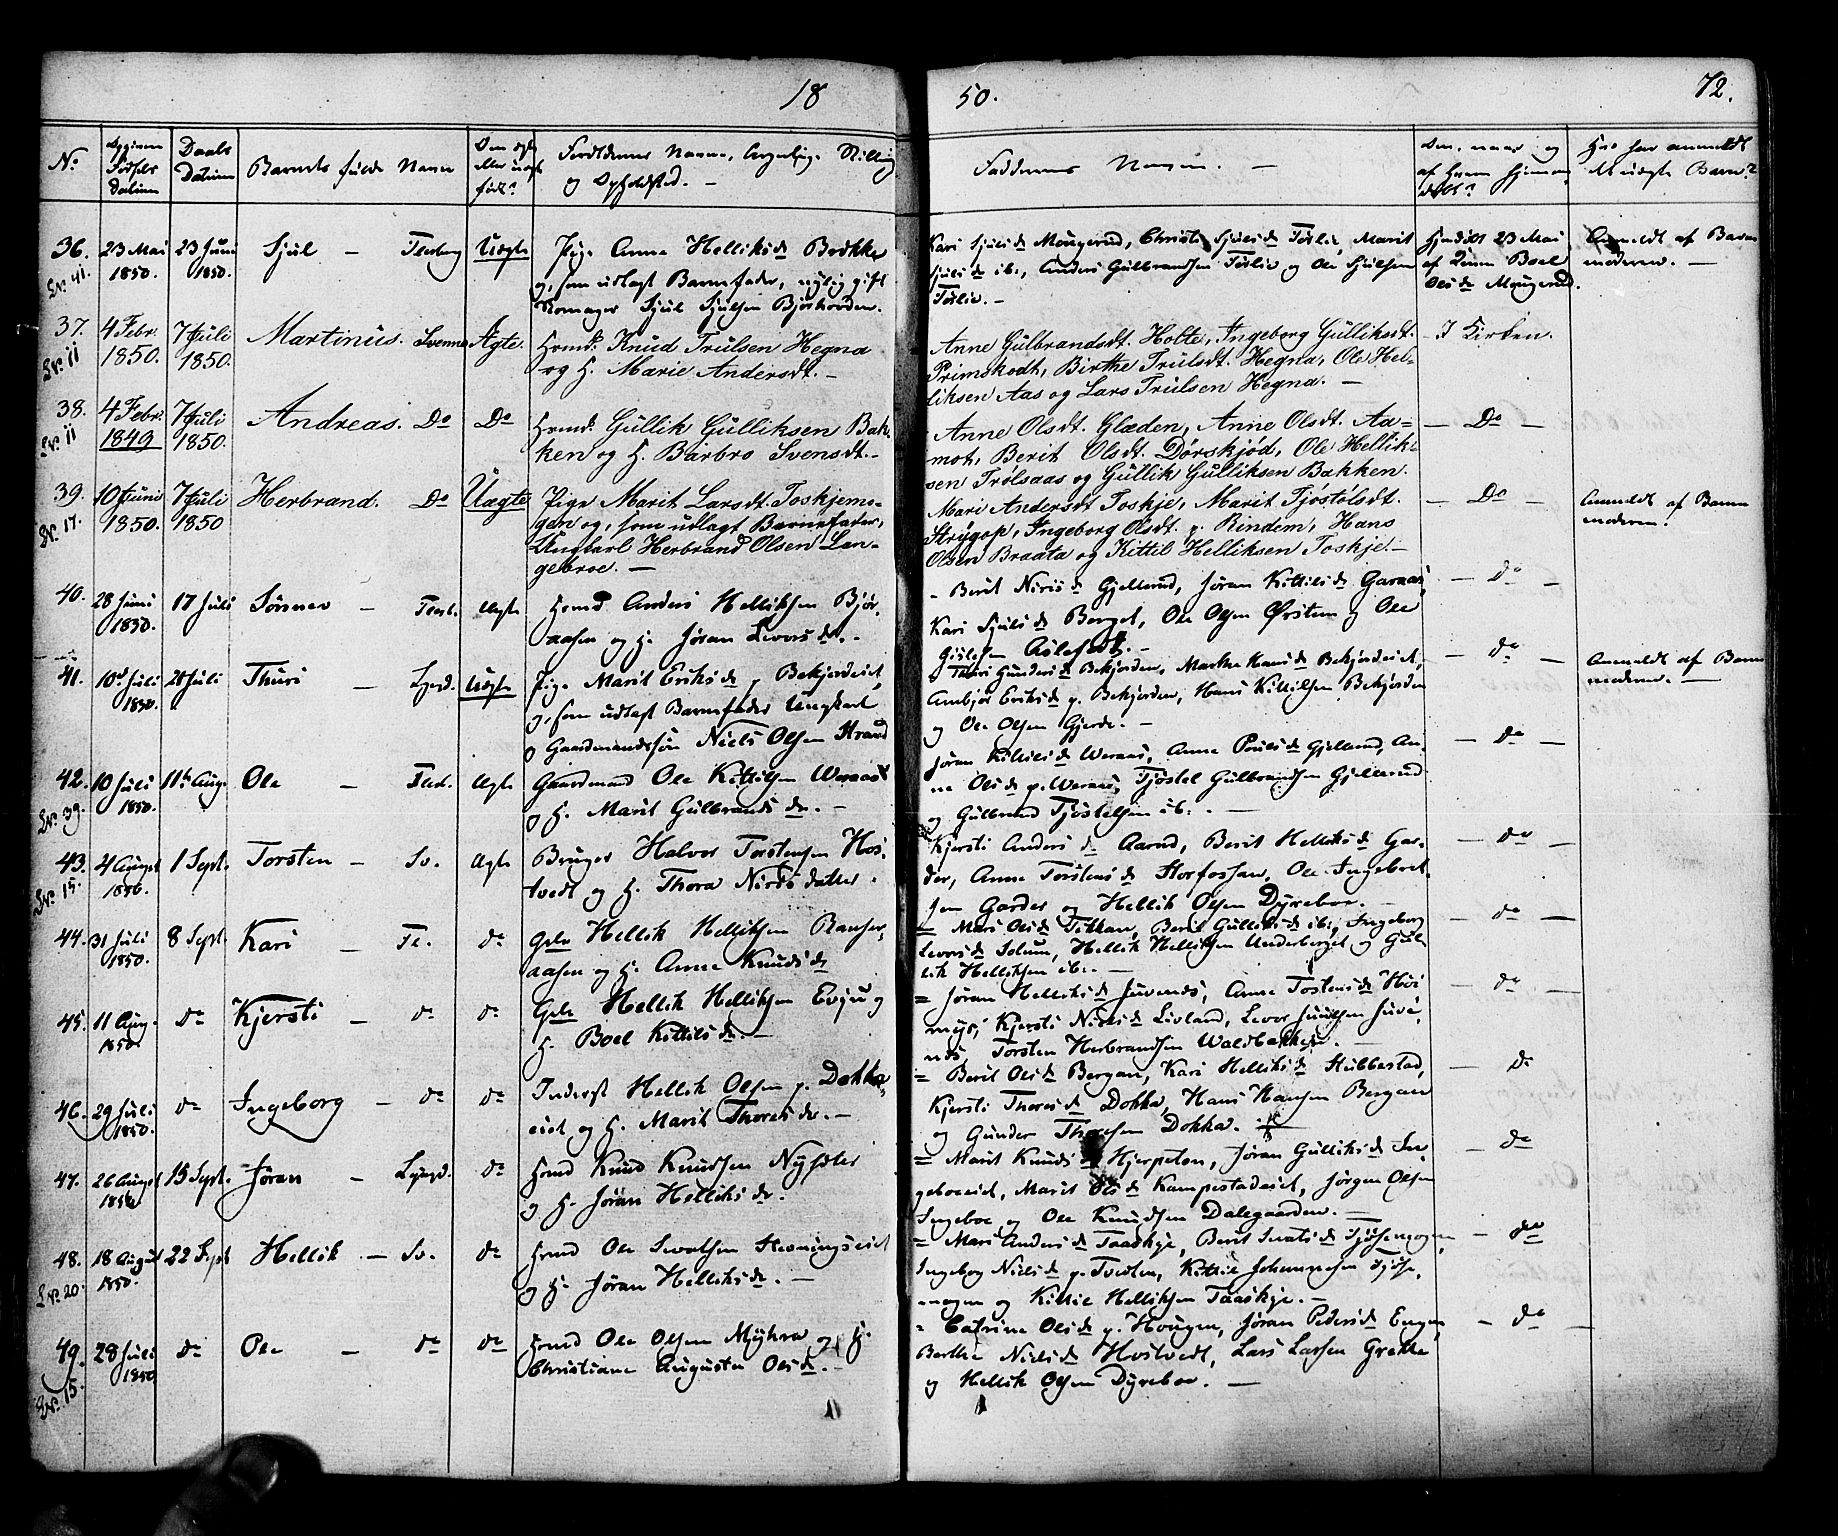 18
50.
72.
No
Opgiven Fødsels Datum
Daabs Datum
Barnets fulde Navn
Om ægte eller uægte født?
Forældrenes Navne, borgerlige Stilling og Opholdsted. -
Faddernes Navne. -
Om, naar og af hvem hjemmedøbt?
Hvo har anmeldt det uægte Barn?
36. 23 Mai 1850. 23 Juni 1850. Sjul - Flesberg Uægte
No 41.
Pige Anne Helliksd Brekke
og, som udlagt Barnefader, nylig gift
Sjul Sjulsen
Kari Sjulsd Mougerud, Christi Sjulsd Torliv, Marit
Sjulsd ib., Anders Gulbrandsen Torliv og Ole Sjulsen
Torliv. -
hjmdøbt 23 Mai
af Boel
Olsd Mougerud.
Anmeldt af Barnemoderen. -
37. 4 Febr. 1850. 7 Juli 1850. Martinus. Svenne Ægte.
No 11
Hmd. Knud Trulsen Hegna
og H. Marie Andersdt. -
Anne Gulbrandsdt. Holte, Ingeborg Gulliksdt.
Primskodt, Birthe Trulsdt. Hegna, Ole Helliksen Aas og Lars Trulsen Hegna. -
I Kirken.
38. 4 Febr. 1849 7 Juli 1850. Andreas. Do Do
No 11
Hmd. Gullik Gulliksen Bakken og H. Barbro Svensdt. -
Anne Olsdt. Glæden, Anne Olsdt. Aamot, Berit Olsdt. Dørskjød, Ole Helliksen Trølsaas og Gullik Gulliksen Bakken.
- Do -
39. 10 Juni 1850. 7 Juli 1850 Herbrand. Do Uægte
No 17.
Pige Marit Larsdt. Toskjemogen og, som udlagt Barnefader,
Ungkarl Herbrand Olsen Langebroe. -
Mari Andersdt Toskje, Marit Tjøstolsdt.
Strygop, Ingeborg Olsdt. p. Rindem, Hans
Olsen Braata og Kittil Helliksen Toskje -
- Do -
Anmeldt af Barnemoderen.
40. 28 Juni 1850. 17 Juli Sønnev - Flesb. Ægte
Hmd Anders Helliksen Bjøraasen og H. Jøran Leversd. -
- Berit Nirisd Gjellerud, Jøran Kittilsd Garaas,
Kari Sjulsd Berget, Ole Olsen Ørsten og Ole
Gislesen
- Do -
41. 10d Juli 1850. 28 Juli Thuri - Lyngd. Uægte
Pige Marit Eriksd p. Bekjordeiet,
og, som udlagt Barnefader Ungkarl
og Gaardmandssøn Niels Olsen Strand
Thuri Gundersd Bekjorden, Marthe Bekjordeiet,
Ambjør Eriksd p. Bekjorden, Hans Kittilsen Bekjorden
og Ole Olsen Gjerde. -
- Do -
Anmeldt af Barnemoderen. -
42. 10 Juli 1850. 11te Aug. Ole - Flesb. Ægte
No 39.
Gaardmand Ole Kittilsen Weraas
og H. Marit Gulbrandsdr. -
Jøran Kittilsd Weraas, Anne Poulsd Gjellerud, Anne Olsd p. Weraas, Tjøstel Gulbrandsen Gjellerud
og Gulbrand Tjøstelsen ib. -
- Do -
43. 4 August 1850. 1 Sept. Torsten - Sv. Ægte
No 15.
Bruger Halvor Torstensen Hostvedt og H. Thora Nirisdatter.
Kjersti Andersd Aarud, Berit Helliksd Garder, Anne Torstensd Storfossan, Ole Ingebretsen Garder og Hellik Olsen Dyrebor. -
- Do -
44. 31 Juli 1850. 8 Sept. Kari - Fl. do
Hellik Helliksen
og H. Anne Knudsd
Mari Olsd Berit Gulliksd ib., Ingeborg
Leversd Solum, Hellik Helliksen Underberget og Gullik Helliksen ib. -
- do -
45. 11 Aug. 1850. do Kjersti - do do
Hellik Helliksen Evju og
H. Boel Kittilsdr. -
= Jøran Helliksd Juvenes, Anne Tostensd
Kjersti Nielsd Livland, Lever Juvenes, Torsten Herbrandsen Waldbakken. -
- do -
46. 29 Juli 1850. do Ingeborg - do do
Inderst Hellik Olsen p. Dokkaeiet og H. Marit Thoresdr. -
= Berit Olsd Bergan, Kari Helliksd Hubbestad,
Kjersti Thoresd Dokka, Hans Hansen Bergan
og Gunder Thoresen Dokka.
- do
47. 26 August 1850. 15 Sept. Jøran - Lyngd. do
Hmd Knud Knudsen
og H. Jøran Helliksdr.
= Marit Knudsd Hjerpeton, Jøran Gulliksd Ingeboeiet, Marit Olsd Kampestadeiet, Jørgen Olsen
Ingeboe og Ole Knudsen Dalegaarden. -
- do
48. 18 August 1850. 22 Sept Hellik - Sv. do
No 20.
Hmd Ole
og H. Jøran Helliksdr. -
= Mari Andersd Taaskje, Berit
Ingebor Nielsd p. Tvedten, Kittil Johannesen
og Kittil Helliksen Taaskje. -
- do -
49. 28 Juli 1850 do Ole - do do
No 15.
Hmd Ole Olsen Myhra og H.
Christiane Augusta Olsd. -
= Catrine Olsd p. Hougen, Jøran Pedersd Engen,
Berthe Nielsd Hostvedt, Lars Larsen
og Hellik Olsen Dyrebor. -
- do -